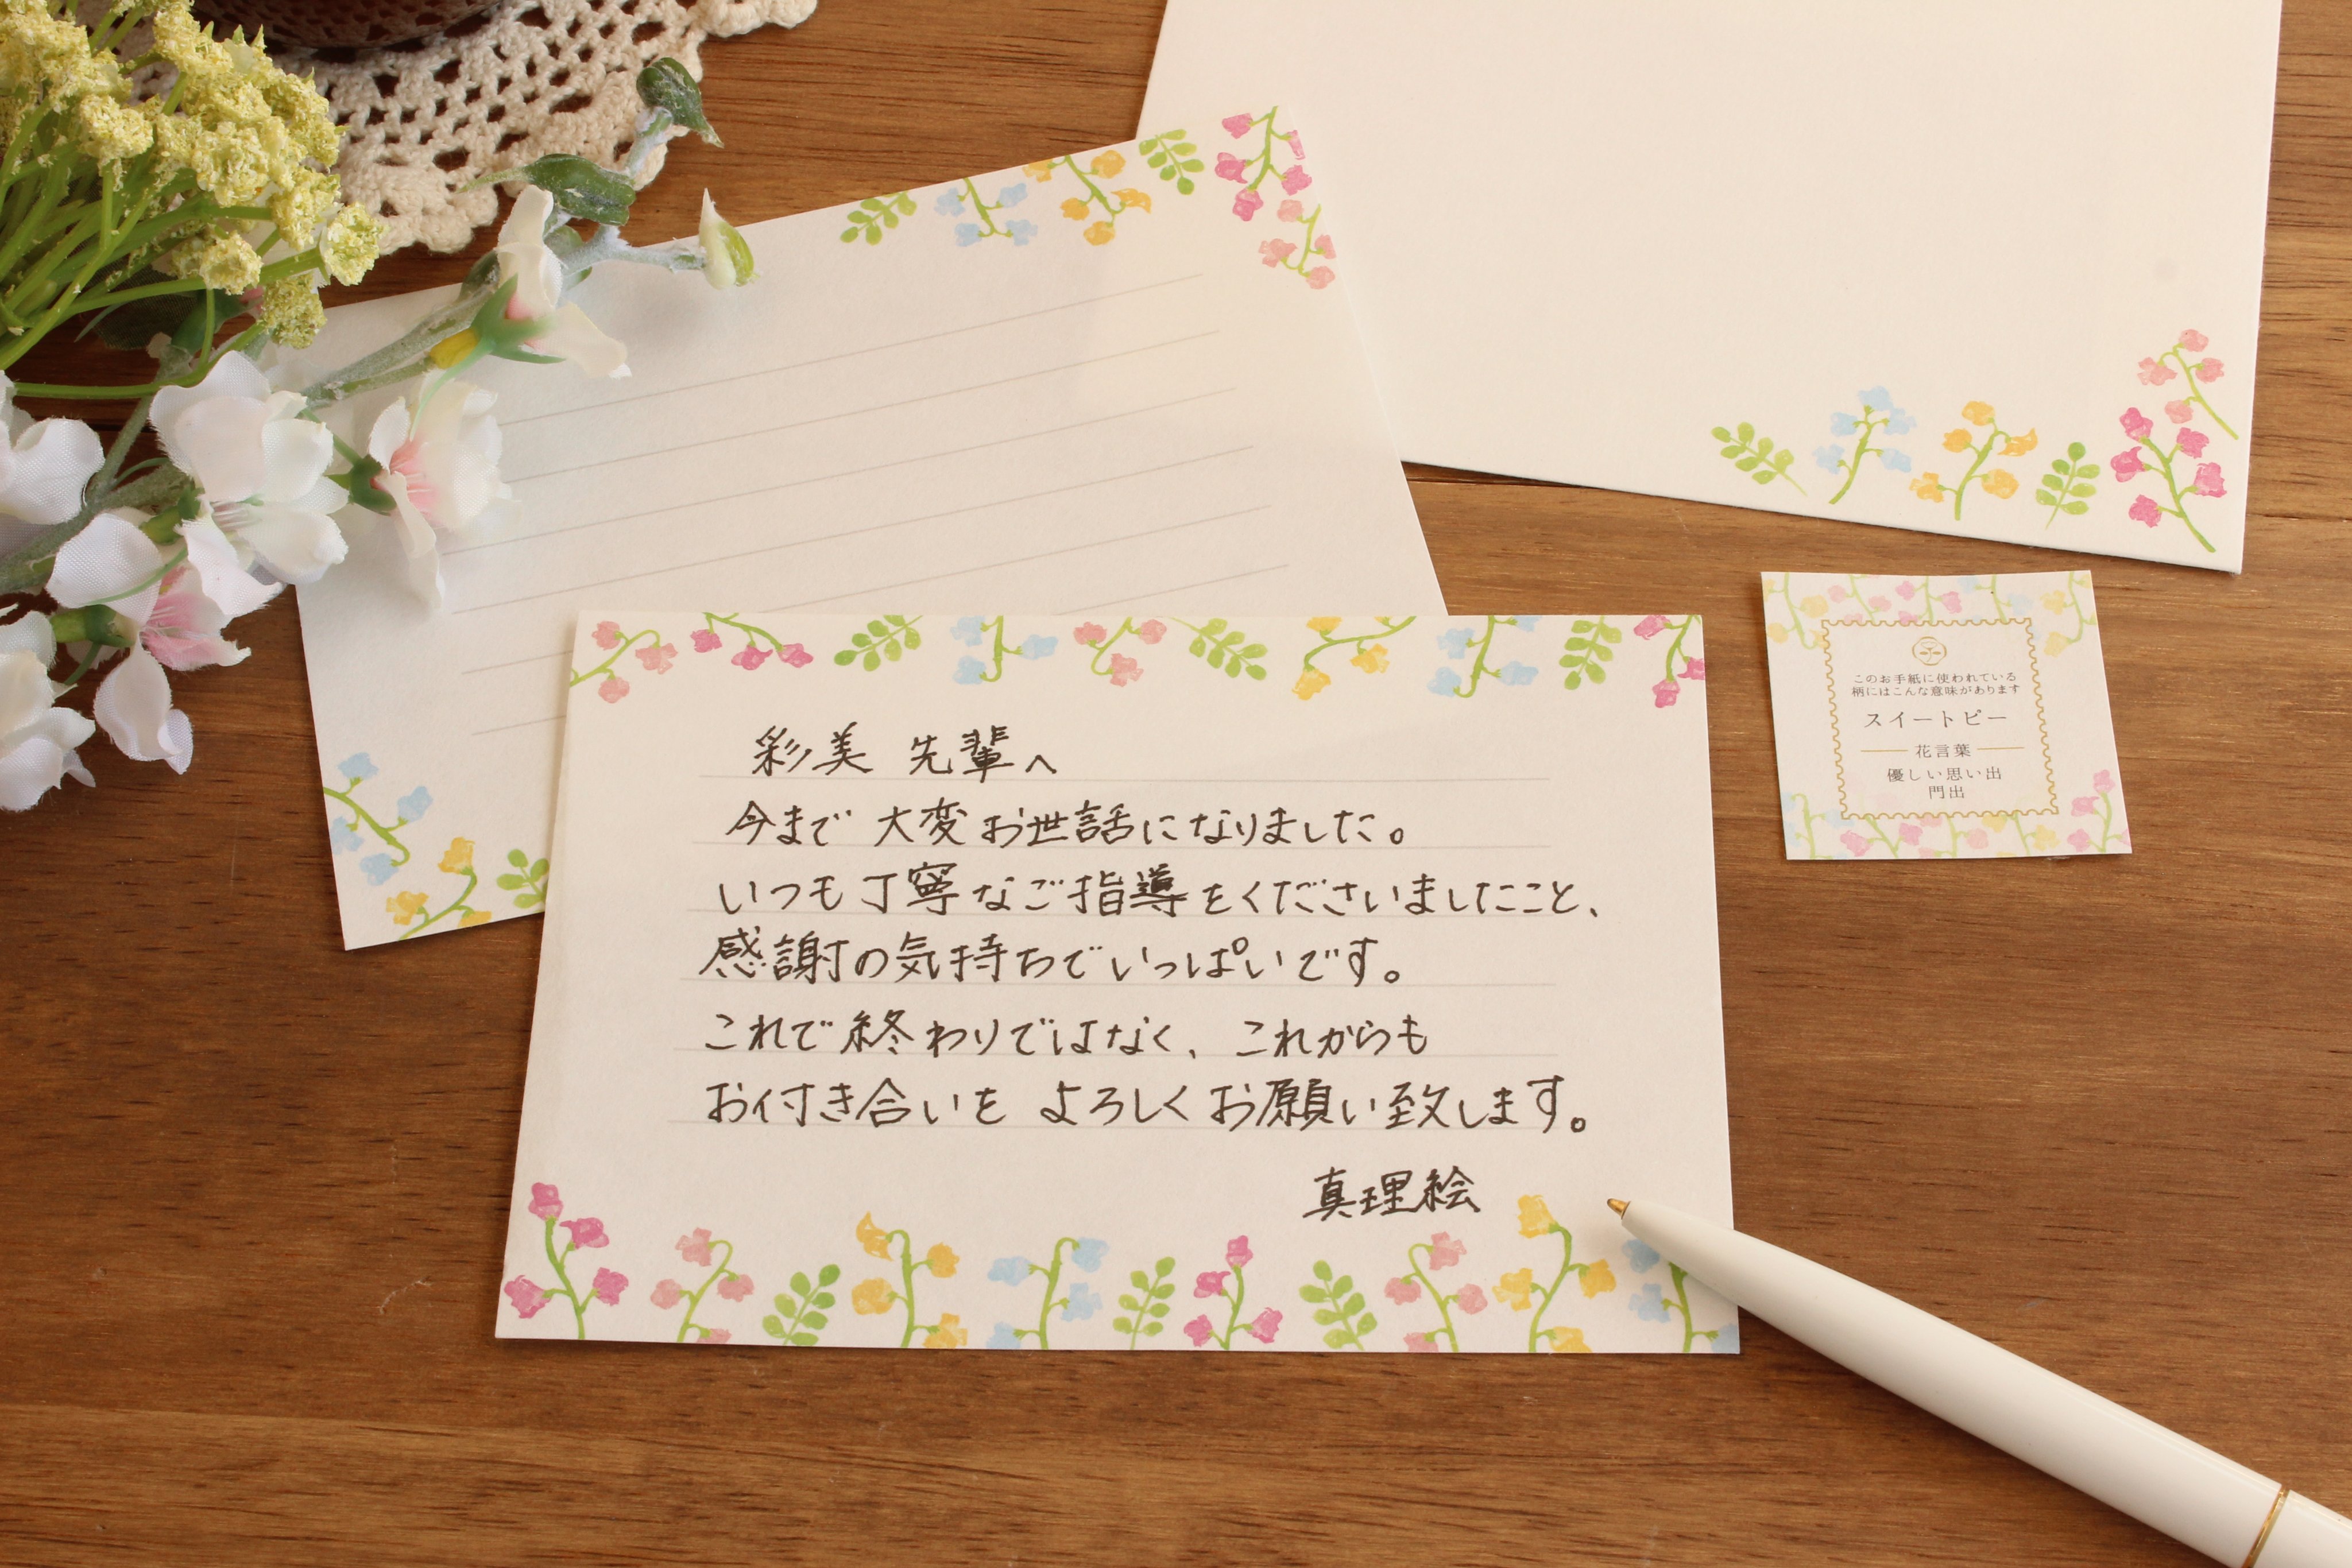 彩美 先輩へ
今まで 大変お世話になりました。
いつも丁寧なご指導をくださいましたこと、
感謝の気持ちでいっぱいです。
これで終わりではなく、これからも
お付き合いを よろしくお願い致します。
真理絵
このお手紙に使われている
柄にはこんな意味があります
スイートピー
花言葉
優しい思い出
門出